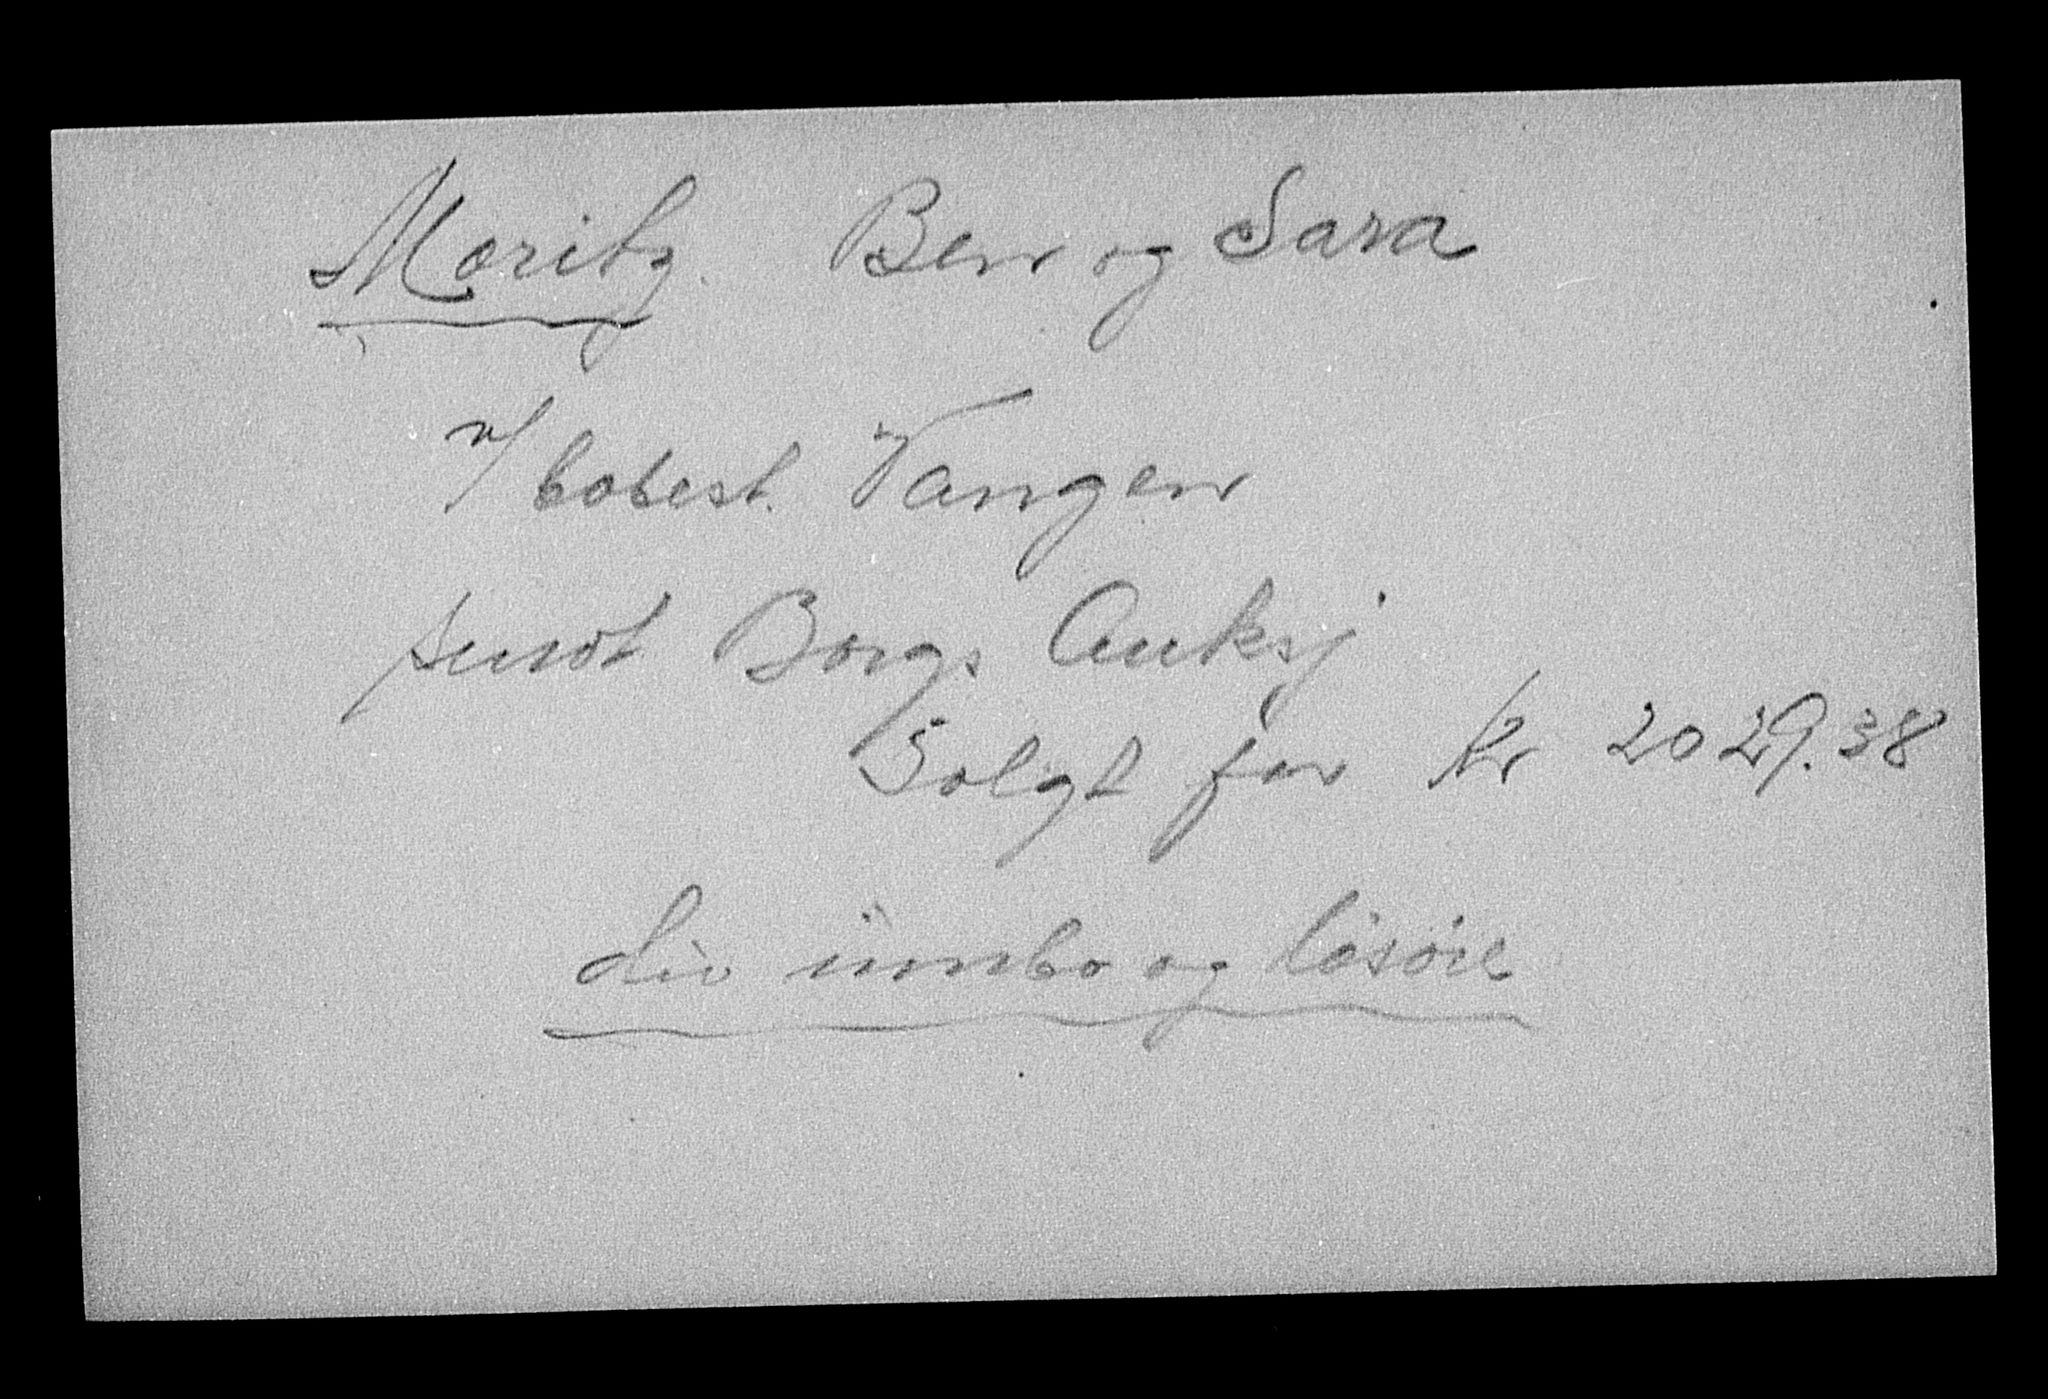 Moritz. Ben og Sara
v/ bobest. Vangen
sendt Borgs Auksj
Solgt for kr 2029.38
div innbo og løsøre